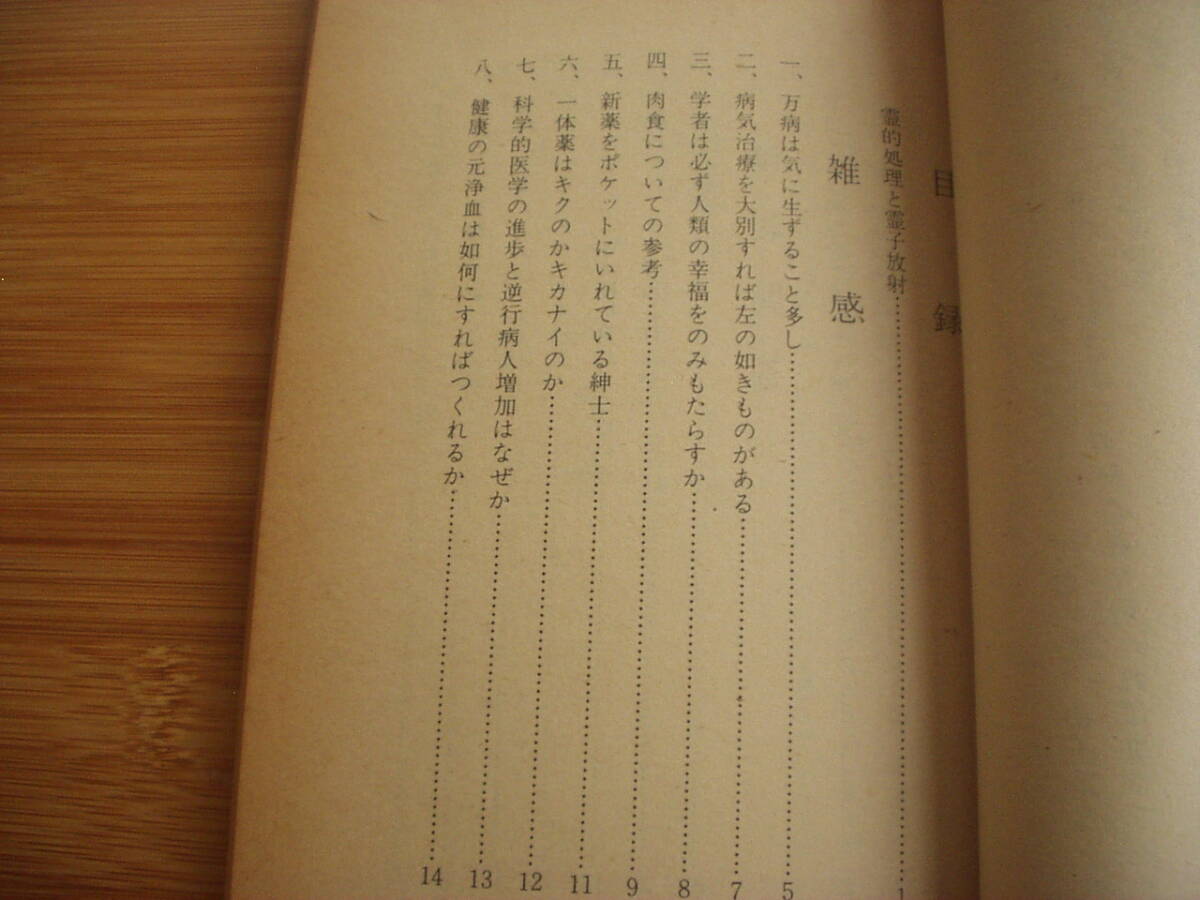 目録
霊的処理と霊子放射……1
雑感
一、万病は気に生ずること多し……5
二、病気治療を大別すれば左の如きものがある……7
三、学者は必ず人類の幸福をのみもたらすか……8
四、肉食についての参考……9
五、新薬をポケットにいれている紳士……11
六、一体薬はキクのかキカナイのか……12
七、科学的医学の進歩と逆行病人増加はなぜか……13
八、健康の元浄血は如何にすればつくれるか……14